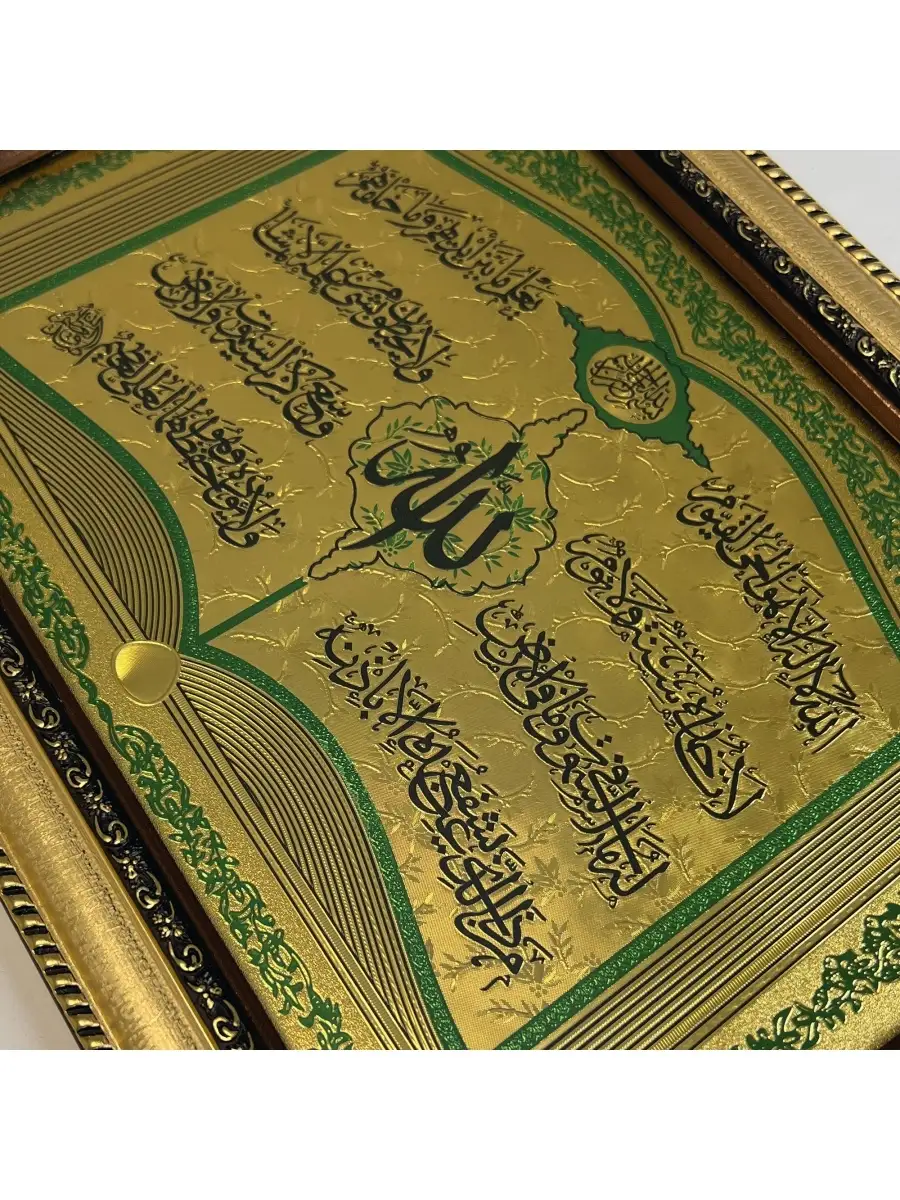 بسم الله الرحمن الرحيم
اَللّٰهُ لَا إِلٰهَ إِلَّا هُوَ الْحَيُّ الْقَيُّومُ
لَا تَأْخُذُهُ سِنَةٌ وَلَا نَوْمٌ
لَهُ مَا فِي السَّمٰوَاتِ وَمَا فِي الْأَرْضِ
مَنْ ذَا الَّذِي يَشْفَعُ عِنْدَهُ إِلَّا بِإِذْنِهِ
الله
يَعْلَمُ مَا بَيْنَ أَيْدِيهِمْ وَمَا خَلْفَهُمْ
وَلَا يُحِيطُونَ بِشَيْءٍ مِنْ عِلْمِهِ إِلَّا بِمَا شَاءَ
وَسِعَ كُرْسِيُّهُ السَّمٰوَاتِ وَالْأَرْضَ
وَلَا يَئُودُهُ حِفْظُهُمَا وَهُوَ الْعَلِيُّ الْعَظِيمُ